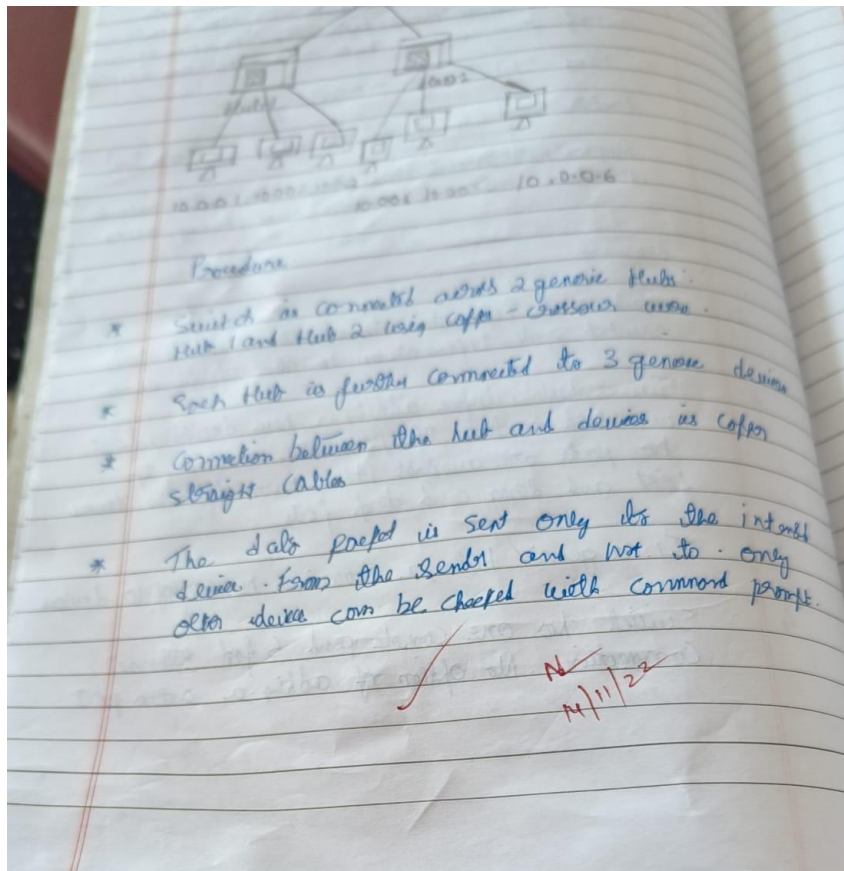 10.0.0.1
10.0.0.6
Procedure
* Switch is connected across 2 generic Hubs.
Hub 1 and Hub 2 using copper - crossover
* Each Hub is further connected to 3 generic devices
* Connection between the hub and devices is copper
straight cables
* The data packet is sent only to the intended
device. From the sender and not to. only
other device can be checked with command prompt.
14/11/22